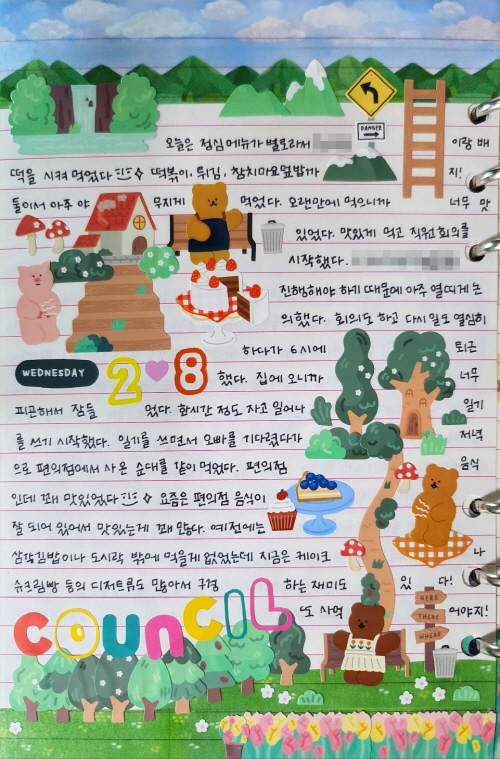 DANGER
오늘은 점심 메뉴가 별로라서 이랑 배
떡을 시켜 먹었다 떡볶이, 튀김, 참치마요덮밥까 지!
둘이서 아주 야 무지게 먹었다. 오랜만에 먹으니까 너무 맛
있었다. 맛있게 먹고 직원회의를
시작했다.
진행해야 하기 때문에 아주 열띠게 논
의했다. 회의도 하고 다시 일도 열심히
하다가 6시에 퇴근
WEDNESDAY 2 8 했다. 집에 오니까 너무
피곤해서 잠들 었다. 한시간 정도 자고 일어나 일기
를 쓰기 시작했다. 일기를 쓰면서 오빠를 기다렸다가 저녁
으로 편의점에서 사온 순대를 같이 먹었다. 편의점 음식
인데 꽤 맛있었다 요즘은 편의점 음식이
잘 되어 있어서 맛있는게 꽤 많다. 예전에는
삼각김밥이나 도시락 밖에 먹을게 없었는데 지금은 케이크 나
슈크림빵 등의 디저트류도 많아서 구경 하는 재미도 있 다!
또 사먹 어야지!
COUNCIL
HERE
THERE
WHERE